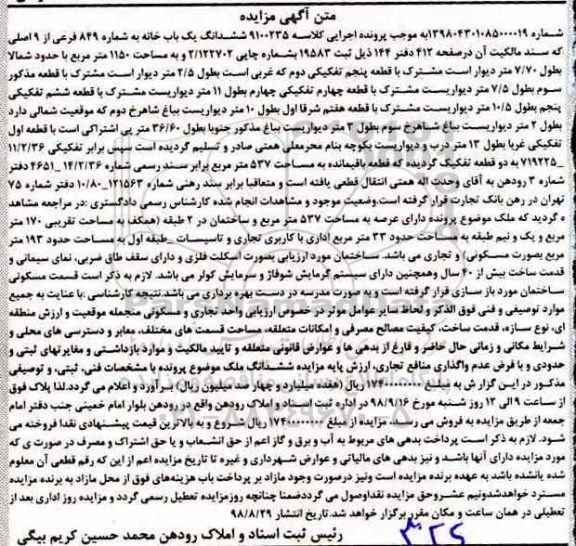 متن آگهی مزایده
شماره ۱۳۹۸۰۴۳۰۱۰۸۵۰۰۰۰۱۹به موجب پرونده اجرایی کلاسه ۹۱۰۰۲۳۵ ششدانگ یک باب خانه به شماره ۸۴۹ فرعی از ۹ اصلی
که سند مالکیت آن درصفحه ۴۱۲ دفتر ۱۴۴ ذیل ثبت ۱۹۵۸۳ بشماره چاپی ۲/۱۲۲۷۰۲ و به مساحت ۱۱۵۰ متر مربع با حدود شمالا
بطول ۷/۷۰ متر دیوار است مشترک با قطعه پنجم تفکیکی دوم که غربی است بطول ۲/۵ متر دیوار است مشترک با قطعه مذکور
سوم بطول ۷/۵ متر دیواریست مشترک با قطعه چهارم تفکیکی چهارم بطول ۱۱ متر دیواریست مشترک با قطعه ششم تفکیکی
پنجم بطول ۱۰/۵ متر دیواریست مشترک با قطعه هفتم شرقا اول بطول ۱۰ متر دیواریست بباغ شاهرخ دوم که موقعیت شمالی دارد
بطول ۲ متر دیواریست بباغ شاهرخ سوم بطول ۲ متر دیواریست بباغ مذکور جنوبا بطول ۳۶/۶۰ متر پی اشتراکی است با قطعه اول
تفکیکی غربا بطول ۱۳ متر درب و دیواریست بکوچه بنام محرمعلی همتی صادر و تسلیم گردیده است سپس برابر تفکیکی ۱۱/۲/۳۶
_۷۱۹۲۲۵ به دو قطعه تفکیک گردیده که قطعه باقیمانده به مساحت ۵۳۷ متر مربع برابر سند رسمی شماره ۱۴/۲/۳۶ _۴۶۵۱ دفتر
شماره ۳ رودهن به آقای وحدت اله همتی انتقال قطعی یافته است و متعاقبا برابر سند رهنی شماره ۱۲۱۵۶۳_۱۰/۸۰ دفتر شماره ۷۵
تهران در رهن بانک تجارت قرار گرفته است.وضعیت موجود و مشاهدات انجام شده کارشناس رسمی دادگستری :در مراجعه مشاهد
ه گردید که ملک موضوع پرونده دارای عرصه به مساحت ۵۳۷ متر مربع و ساختمان در ۲ طبقه (همکف به مساحت تقریبی ۱۷۰ متر
مربع و یک و نیم طبقه به مساحت حدود ۳۳ متر مربع اداری با کاربری تجاری و تاسیسات _طبقه اول به مساحت حدود ۱۹۳ متر
مربع بصورت مسکونی) و تجاری می باشد. ساختمان مورد ارزیابی بصورت اسکلت فلزی و دارای سقف طاق ضربی، نمای سیمانی و
قدمت ساخت بیش از ۴۰ سال وهمچنین دارای سیستم گرمایش شوفاژ و سرمایش کولر می باشد. لازم به ذکر است قسمت مسکونی
ساختمان مورد باز سازی قرار گرفته است و به صورت مدرسه در دست بهره برداری می باشد.نتیجه کارشناسی :با عنایت به جمیع
موارد توصیفی و فنی فوق الذکر و لحاظ سایر عوامل موثر در خصوص ارزیابی واحد تجاری و مسکونی منجمله موقعیت و ارزش منطقه
ای، نوع سازه، قدمت ساخت، کیفیت مصالح مصرفی و امکانات متعلقه، مساحت قسمت های مختلف، معابر و دسترسی های محلی و
شرایط مکانی و زمانی حال حاضر و فارغ از بدهی ها و عوارض قانونی متعلقه و تایید مالکیت و موارد بازداشتی و مغایرتهای ثبتی و
حدودی و با فرض عدم واگذاری منافع تجاری، ارزش پایه مزایده ششدانگ ملک موضوع پرونده با مشخصات فنی، ثبتی، و توصیفی
مذکور در این گزارش به مبلغ ریال (هفده میلیارد و چهار صد میلیون ریال) بر آورد و اعلام می گردد.لذا پلاک فوق
از ساعت ۹ الی ۱۲ روز شنبه مورخ ۹۸/۹/۱۶ در اداره ثبت اسناد و املاک رودهن واقع در رودهن بلوار امام خمینی جنب دفتر امام
جمعه از طریق مزایده به فروش می رسد. مزایده از مبلغ ریال شروع و به بالاترین قیمت پیشنهادی نقدا فروخته می
شود. لازم به ذکر است پرداخت بدهی های مربوط به آب و برق و گاز اعم از حق انشعاب و یا حق اشتراک و مصرف در صورت ی که
مورد مزایده دارای آنها باشد و نیز بدهی های مالیاتی و عوارض شهرداری و غیره تا تاریخ مزایده اعم از این که رقم قطعی آن معلوم
شده یانشده باشد به عهده برنده مزایده است ونیز درصورت وجود مازاد بر پرداخت باب هزینه‌های فوق از محل مازاد به برنده مزایده
مسترد خواهدشدونیم عشروحق مزایده نقداوصول می گرددضمنا چنانچه روزمزایده تعطیل رسمی گردد و مزایده روز اداری بعد از
تعطیلی در همان ساعت و مکان مقرر برگزار خواهد شد.تاریخ انتشار ۹۸/۸/۲۹
رئیس ثبت اسناد و املاک رودهن محمد حسین کریم بیگی